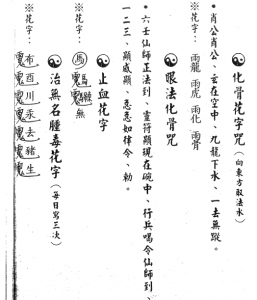 化骨花字咒(向東方取法水)
• 肖公肖公、玄在空中、九龍下水、一去無蹤。
※花字:雨龍 雨虎 雨化 雨骨
眼法化骨咒
• 六壬仙師正法到、靈符顯現在碗中、行兵喝令仙師到、
一二三、顯威顯、急急如律令、勅。
止血花字
※花字:
治無名腫毒花字(每日寫三次)
※花字: